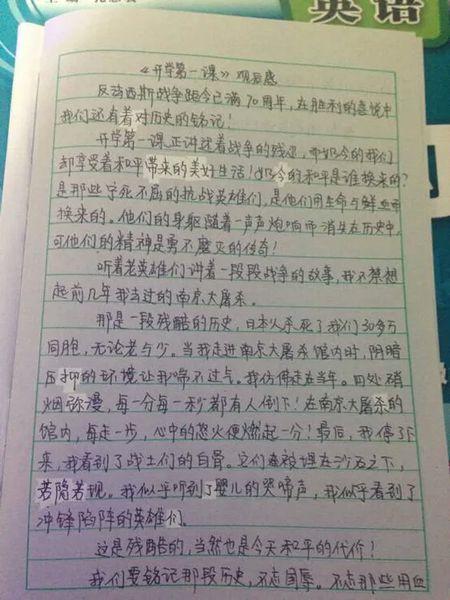 英语
《开学第一课》观后感
反法西斯战争距今已满70周年，在胜利的喜悦中
我们还有着对历史的铭记！
开学第一课正讲述着战争的残忍，而如今的我们
却享受着和平带来的美好生活！如今的和平是谁换来的？
是那些宁死不屈的抗战英雄们，是他们用生命与鲜血而
换来的。他们的身躯随着一声声炮响而消失在历史中，
可他们的精神是勇不磨灭的传奇！
听着老英雄们讲着一段段战争的故事，我不禁想
起前几年我去过的南京大屠杀。
那是一段残酷的历史，日本人杀死了我们30多万
同胞，无论老与少。当我走进南京大屠杀馆内时，阴暗
压抑的环境让我喘不过气。我仿佛走在当年。四处硝
烟弥漫，每一分每一秒都有人倒下！在南京大屠杀的
馆内，每走一步，心中的怒火便燃起一分！最后，我停了下
来，我看到了战士们的白骨。它们被埋在沙石之下，
若隐若现。我似乎听到了婴儿的哭啼声，我似乎看到了
冲锋陷阵的英雄们。
这是残酷的，当然也是今天和平的代价！
我们要铭记那段历史，不忘国辱。不忘那些用血